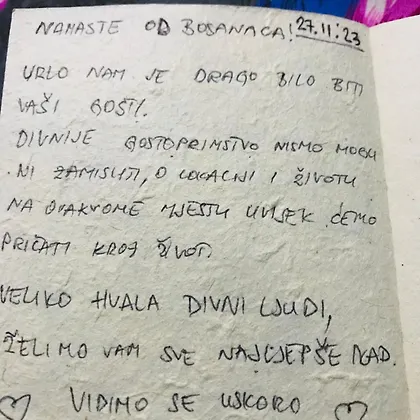 NAMASTE OD BOSANACA! 27.11.'23
VRLO NAM JE DRAGO BILO BITI
VAŠI GOSTI.
DIVNIJE GOSTOPRIMSTVO NISMO MOGLI
NI ZAMISLITI, O LOKACIJI I ŽIVOTU
NA OVAKVOME MJESTU UVIJEK ĆEMO
PRIČATI KROZ ŽIVOT.
VELIKO HVALA DIVNI LJUDI,
ŽELIMO VAM SVE NAJLJEPŠE
VIDIMO SE USKORO